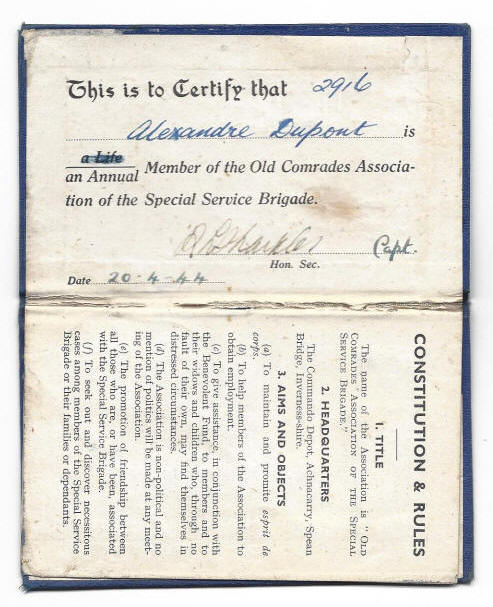 This is to Certify that 2916
Alexandre Dupont is
a Life
an Annual Member of the Old Comrades Associa-
tion of the Special Service Brigade.
Capt.
Hon. Sec.
Date 20-4-44
CONSTITUTION & RULES
1. TITLE
The name of the Association is "OLD
COMRADES' ASSOCIATION OF THE SPECIAL
SERVICE BRIGADE."
2. HEADQUARTERS
The Commando Depot, Achnacarry, Spean
Bridge, Inverness-shire.
3. AIMS AND OBJECTS
(a) To maintain and promite esprit de
corps.
(b) To help members of the Association to
obtain employment.
(c) To give assistance, in conjunction with
the Benevolent Fund, to members and to
their widows and children who, through no
fault of their own, may find themselves in
distressed circumstances.
(d) The Association is non-political and no
mention of politics will be made at any meet-
ing of the Association.
(e) The promotion of friendship between
all those who are, or have been, associated
with the Special Service Brigade.
(f) To seek out and discover necessitous
cases among members of the Special Service
Brigade or their families or dependants.